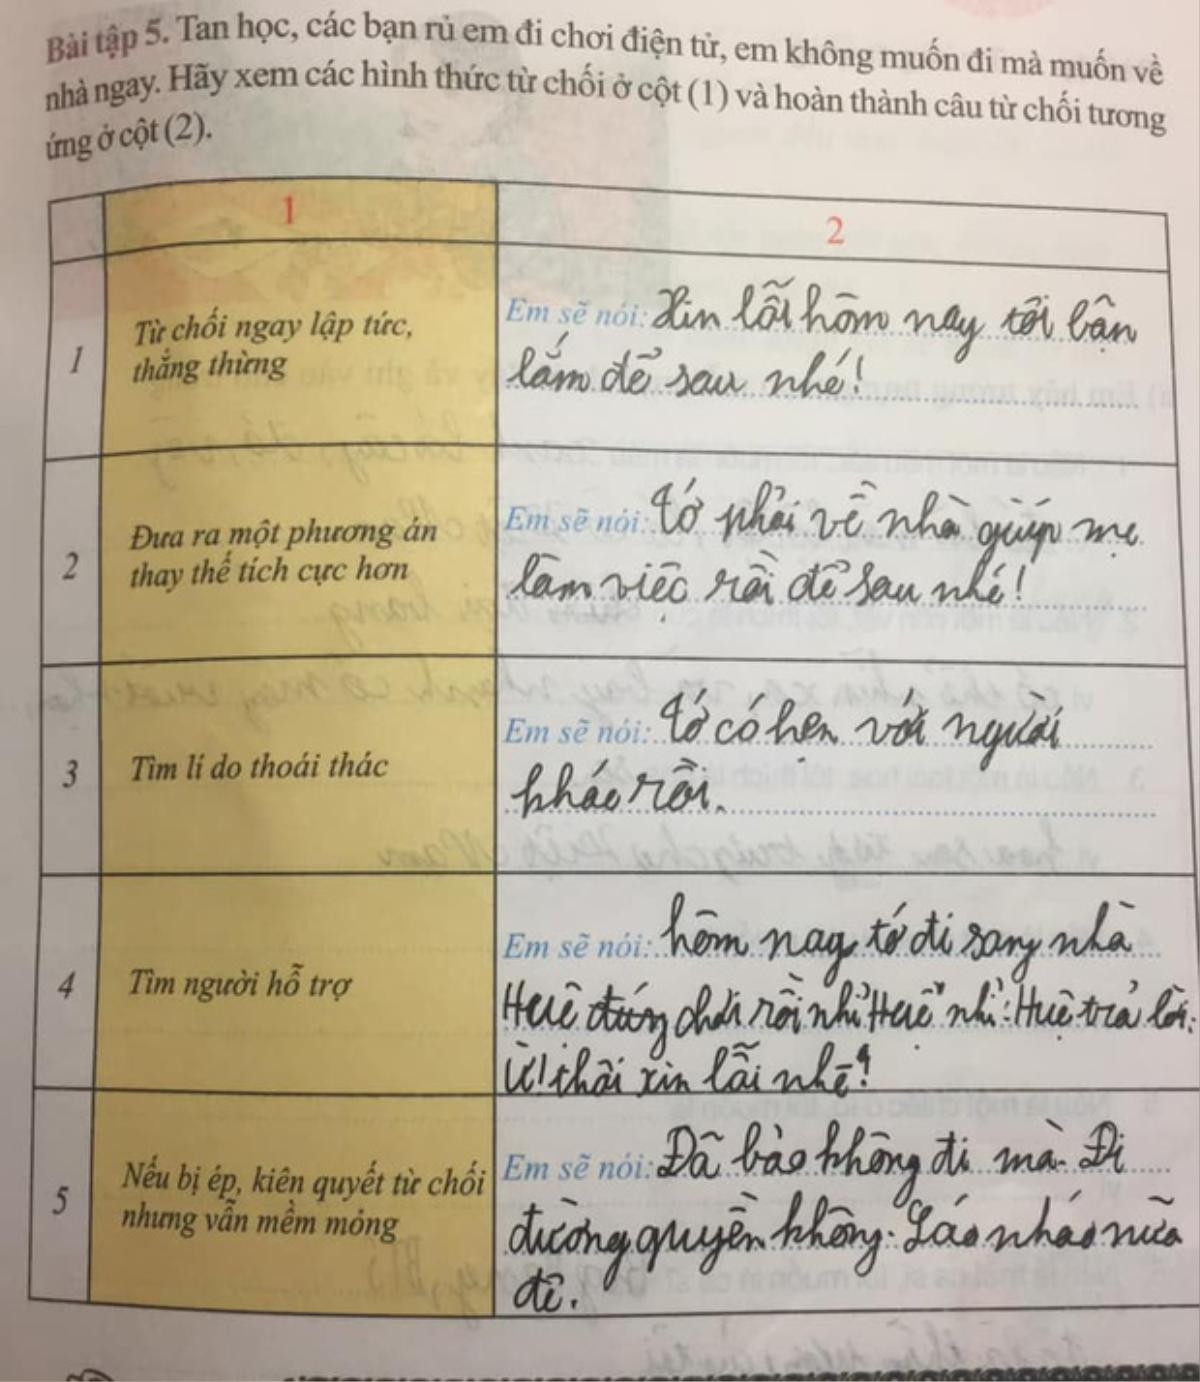 Bài tập 5. Tan học, các bạn rủ em đi chơi điện tử, em không muốn đi mà muốn về
nhà ngay. Hãy xem các hình thức từ chối ở cột (1) và hoàn thành câu từ chối tương
ứng ở cột (2).
1
2
1
Từ chối ngay lập tức,
thẳng thừng
Em sẽ nói: Xin lỗi hôm nay tôi bận
lắm để sau nhé!
2
Đưa ra một phương án
thay thế tích cực hơn
Em sẽ nói: Tớ phải về nhà giúp mẹ
làm việc rồi để sau nhé!
3
Tìm lí do thoái thác
Em sẽ nói: Tớ có hẹn với người
khác rồi.
4
Tìm người hỗ trợ
Em sẽ nói: hôm nay tớ đi sang nhà
Huệ chơi rồi nhỉ Huệ nhỉ: Huệ trả lời:
Ừ! thôi xin lỗi nhé!
5
Nếu bị ép, kiên quyết từ chối
nhưng vẫn mềm mỏng
Em sẽ nói: Đã bảo không đi mà. Đi
đường quyền không. Láo nháo nữa
đê.